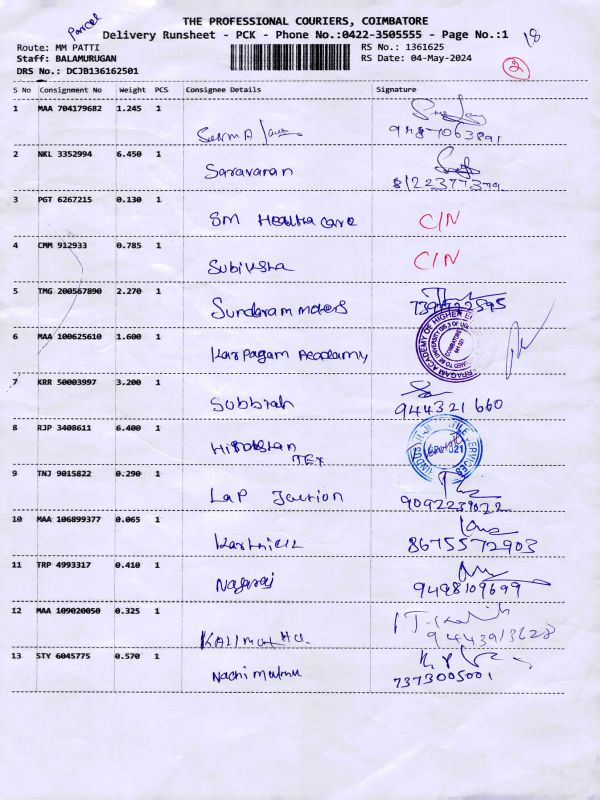 THE PROFESSIONAL COURIERS, COIMBATORE
Parcel
Delivery Runsheet - PCK - Phone No.:0422-3505555 - Page No.:1
18
Route: MM PATTI RS No.: 1361625
Staff: BALAMURUGAN RS Date: 04-May-2024
DRS No.: DCJB136162501
2
S No Consignment No Weight PCS Consignee Details Signature
1 MAA 704179682 1.245 1
2 NKL 3352994 6.450 1
Saravanan
3 PGT 6267215 0.130 1
SM Health care C/N
4 CMM 912933 0.785 1
Subiksha C/N
5 TMG 200567890 2.270 1
Sundaram motors
6 MAA 100625610 1.600 1
Karpagam Academy
7 KRR 50003997 3.200 1
Subbiah 944321 660
8 RJP 3408611 6.400 1
Hindusthan
TEX
9 TNJ 9015822 0.290 1
9092239022
10 MAA 106899377 0.065 1
8675572903
11 TRP 4993317 0.410 1
Nagaraj 9498109699
12 MAA 109020050 0.325 1
9443913628
13 STY 6045775 0.570 1
Nachi muthu 7373005001